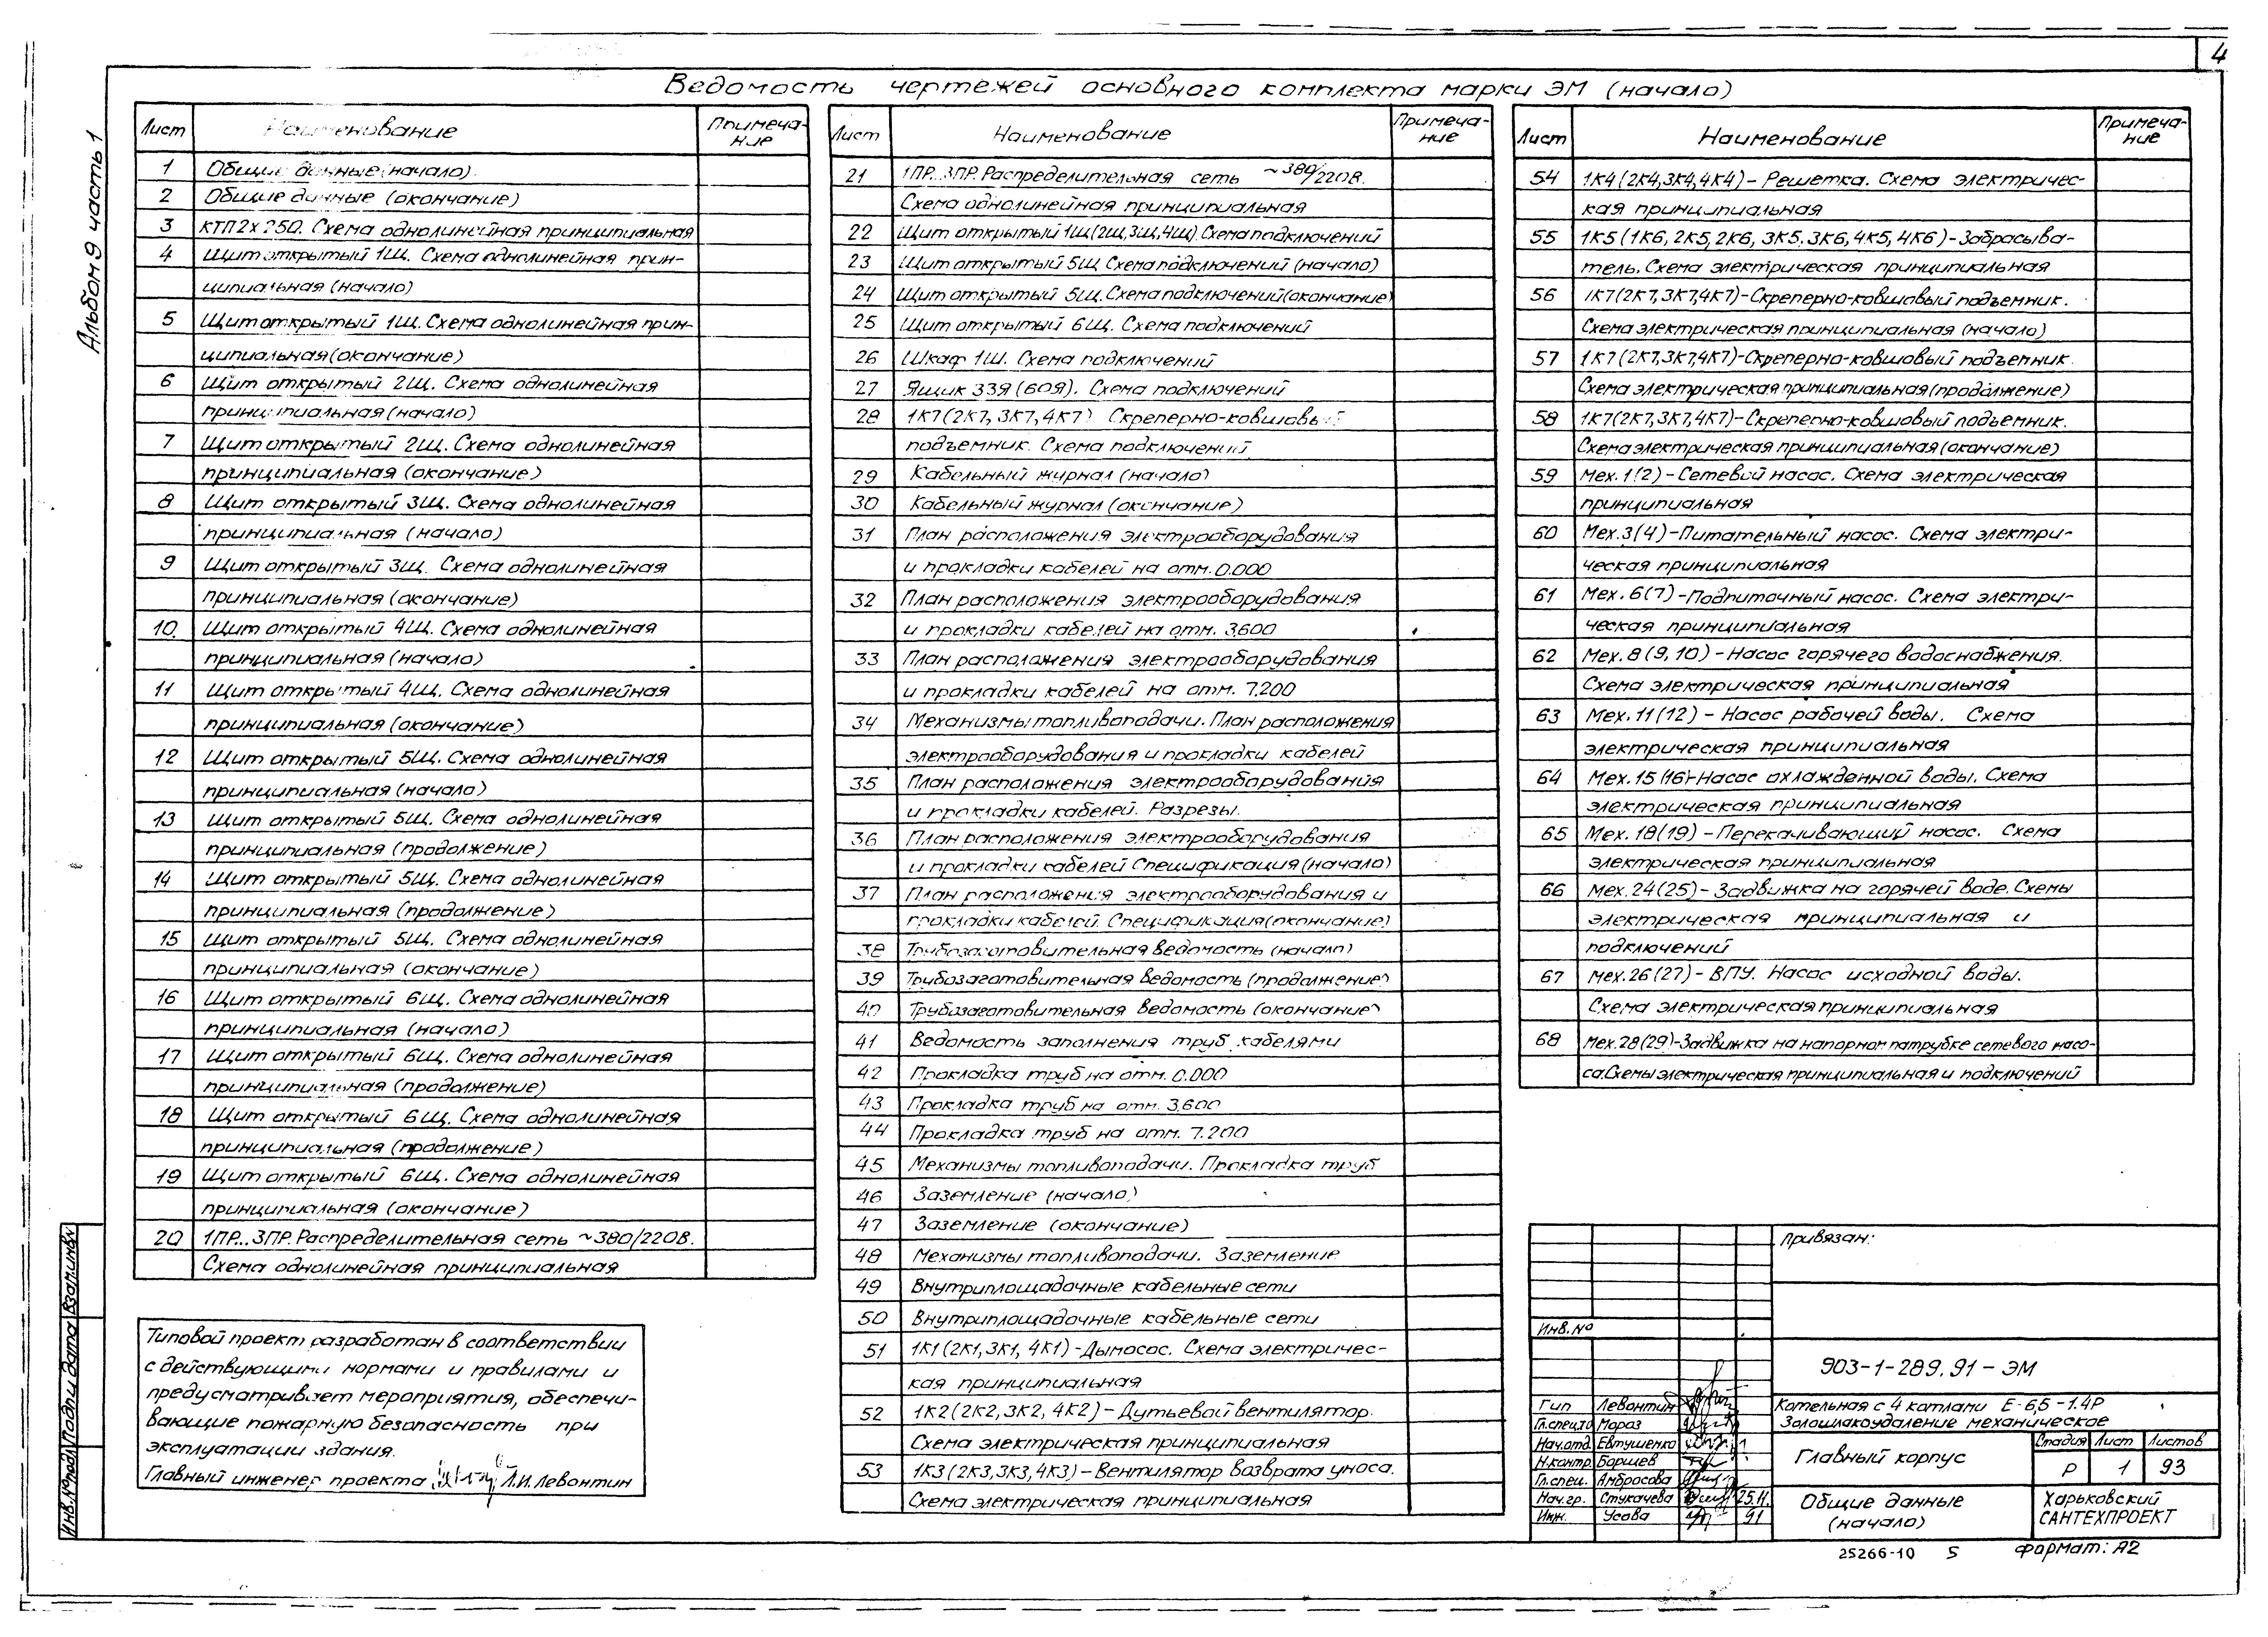 4
Ведомость чертежей основного комплекта марки ЭМ (начало)
Альбом 9 часть 1
Лист Наименование Примеча-
ние
1 Общие данные (начало)
2 Общие данные (окончание)
3 КТП 2х250. Схема однолинейная принципиальная
4 Щит открытый 1Щ. Схема однолинейная прин-
ципиальная (начало)
5 Щит открытый 1Щ. Схема однолинейная прин-
ципиальная (окончание)
6 Щит открытый 2Щ. Схема однолинейная
принципиальная (начало)
7 Щит открытый 2Щ. Схема однолинейная
принципиальная (окончание)
8 Щит открытый 3Щ. Схема однолинейная
принципиальная (начало)
9 Щит открытый 3Щ. Схема однолинейная
принципиальная (окончание)
10 Щит открытый 4Щ. Схема однолинейная
принципиальная (начало)
11 Щит открытый 4Щ. Схема однолинейная
принципиальная (окончание)
12 Щит открытый 5Щ. Схема однолинейная
принципиальная (начало)
13 Щит открытый 5Щ. Схема однолинейная
принципиальная (продолжение)
14 Щит открытый 5Щ. Схема однолинейная
принципиальная (продолжение)
15 Щит открытый 5Щ. Схема однолинейная
принципиальная (окончание)
16 Щит открытый 6Щ. Схема однолинейная
принципиальная (начало)
17 Щит открытый 6Щ. Схема однолинейная
принципиальная (продолжение)
18 Щит открытый 6Щ. Схема однолинейная
принципиальная (продолжение)
19 Щит открытый 6Щ. Схема однолинейная
принципиальная (окончание)
20 1ПР...3ПР. Распределительная сеть ~380/220В.
Схема однолинейная принципиальная
Лист Наименование Примеча-
ние
21 1ПР...3ПР. Распределительная сеть ~380/220В.
Схема однолинейная принципиальная
22 Щит открытый 1Щ(2Щ,3Щ,4Щ). Схема подключений
23 Щит открытый 5Щ. Схема подключений (начало)
24 Щит открытый 5Щ. Схема подключений (окончание)
25 Щит открытый 6Щ. Схема подключений
26 Шкаф 1Ш. Схема подключений
27 Ящик 33Я (60Я). Схема подключений
28 1К7 (2К7, 3К7, 4К7) Скреперно-ковшовый
подъемник. Схема подключений
29 Кабельный журнал (начало)
30 Кабельный журнал (окончание)
31 План расположения электрооборудования
и прокладки кабелей на отм. 0.000
32 План расположения электрооборудования
и прокладки кабелей на отм. 3.600
33 План расположения электрооборудования
и прокладки кабелей на отм. 7.200
34 Механизмы топливоподачи. План расположения
электрооборудования и прокладки кабелей
35 План расположения электрооборудования
и прокладки кабелей. Разрезы.
36 План расположения электрооборудования
и прокладки кабелей Спецификация (начало)
37 План расположения электрооборудования и
прокладки кабелей. Спецификация (окончание)
38 Трубозаготовительная ведомость (начало)
39 Трубозаготовительная ведомость (продолжение)
40 Трубозаготовительная ведомость (окончание)
41 Ведомость заполнения труб кабелями
42 Прокладка труб на отм. 0.000
43 Прокладка труб на отм. 3.600
44 Прокладка труб на отм. 7.200
45 Механизмы топливоподачи. Прокладка труб
46 Заземление (начало)
47 Заземление (окончание)
48 Механизмы топливоподачи. Заземление
49 Внутриплощадочные кабельные сети
50 Внутриплощадочные кабельные сети
51 1К1 (2К1, 3К1, 4К1) - Дымосос. Схема электричес-
кая принципиальная
52 1К2 (2К2, 3К2, 4К2) - Дутьевой вентилятор.
Схема электрическая принципиальная
53 1К3 (2К3, 3К3, 4К3) - Вентилятор возврата уноса.
Схема электрическая принципиальная
Лист Наименование Примеча-
ние
54 1К4 (2К4, 3К4, 4К4) - Решетка. Схема электричес-
кая принципиальная
55 1К5 (1К6, 2К5, 2К6, 3К5, 3К6, 4К5, 4К6) - Забрасыва-
тель. Схема электрическая принципиальная
56 1К7 (2К7, 3К7, 4К7) - Скреперно-ковшовый подъемник.
Схема электрическая принципиальная (начало)
57 1К7 (2К7, 3К7, 4К7) - Скреперно-ковшовый подъемник.
Схема электрическая принципиальная (продолжение)
58 1К7 (2К7, 3К7, 4К7) - Скреперно-ковшовый подъемник.
Схема электрическая принципиальная (окончание)
59 Мех. 1(2) - Сетевой насос. Схема электрическая
принципиальная
60 Мех. 3(4) - Питательный насос. Схема электри-
ческая принципиальная
61 Мех. 6(7) - Подпиточный насос. Схема электри-
ческая принципиальная
62 Мех. 8 (9, 10) - Насос горячего водоснабжения.
Схема электрическая принципиальная
63 Мех. 11 (12) - Насос рабочей воды. Схема
электрическая принципиальная
64 Мех. 15 (16) - Насос охлажденной воды. Схема
электрическая принципиальная
65 Мех. 18 (19) - Перекачивающий насос. Схема
электрическая принципиальная
66 Мех. 24 (25) - Задвижка на горячей воде. Схемы
электрическая принципиальная и
подключений
67 Мех. 26 (27) - ВПУ. Насос исходной воды.
Схема электрическая принципиальная
68 Мех. 28 (29) - Задвижка на напорном патрубке сетевого насо-
са. Схемы электрическая принципиальная и подключений
Типовой проект разработан в соответствии
с действующими нормами и правилами и
предусматривает мероприятия, обеспечи-
вающие пожарную безопасность при
эксплуатации здания.
Главный инженер проекта Л.И. Левонтин
Инв. № подл. Подп и дата Взам. инв. №
Привязан:
Инв. №
903-1-289.91 - ЭМ
Гип Левонтин
Гл. спец. то Мороз
Нач. отд. Евтушенко
Н. контр. Борщев
Гл. спец. Амбросова
Нач. гр. Стукачева 25.11.
Инж. Усова 91
Котельная с 4 котлами Е-6,5-1.4Р
Золошлакоудаление механическое
Главный корпус
Стадия Лист Листов
Р 1 93
Общие данные
(начало)
Харьковский
САНТЕХПРОЕКТ
25266-10 5 Формат: А2